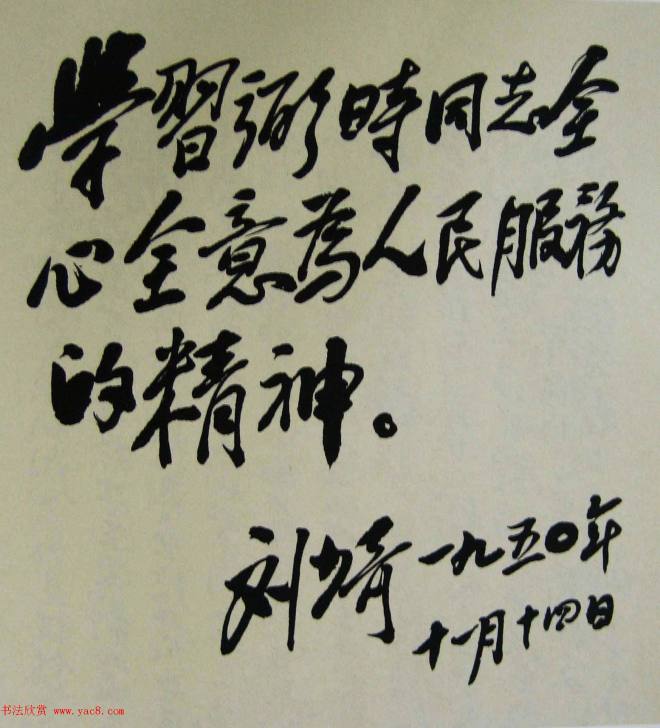 學習弼時同志全
心全意為人民服務
的精神。
刘少奇 一九五〇年
十一月十四日
书法欣赏 www.yac8.com